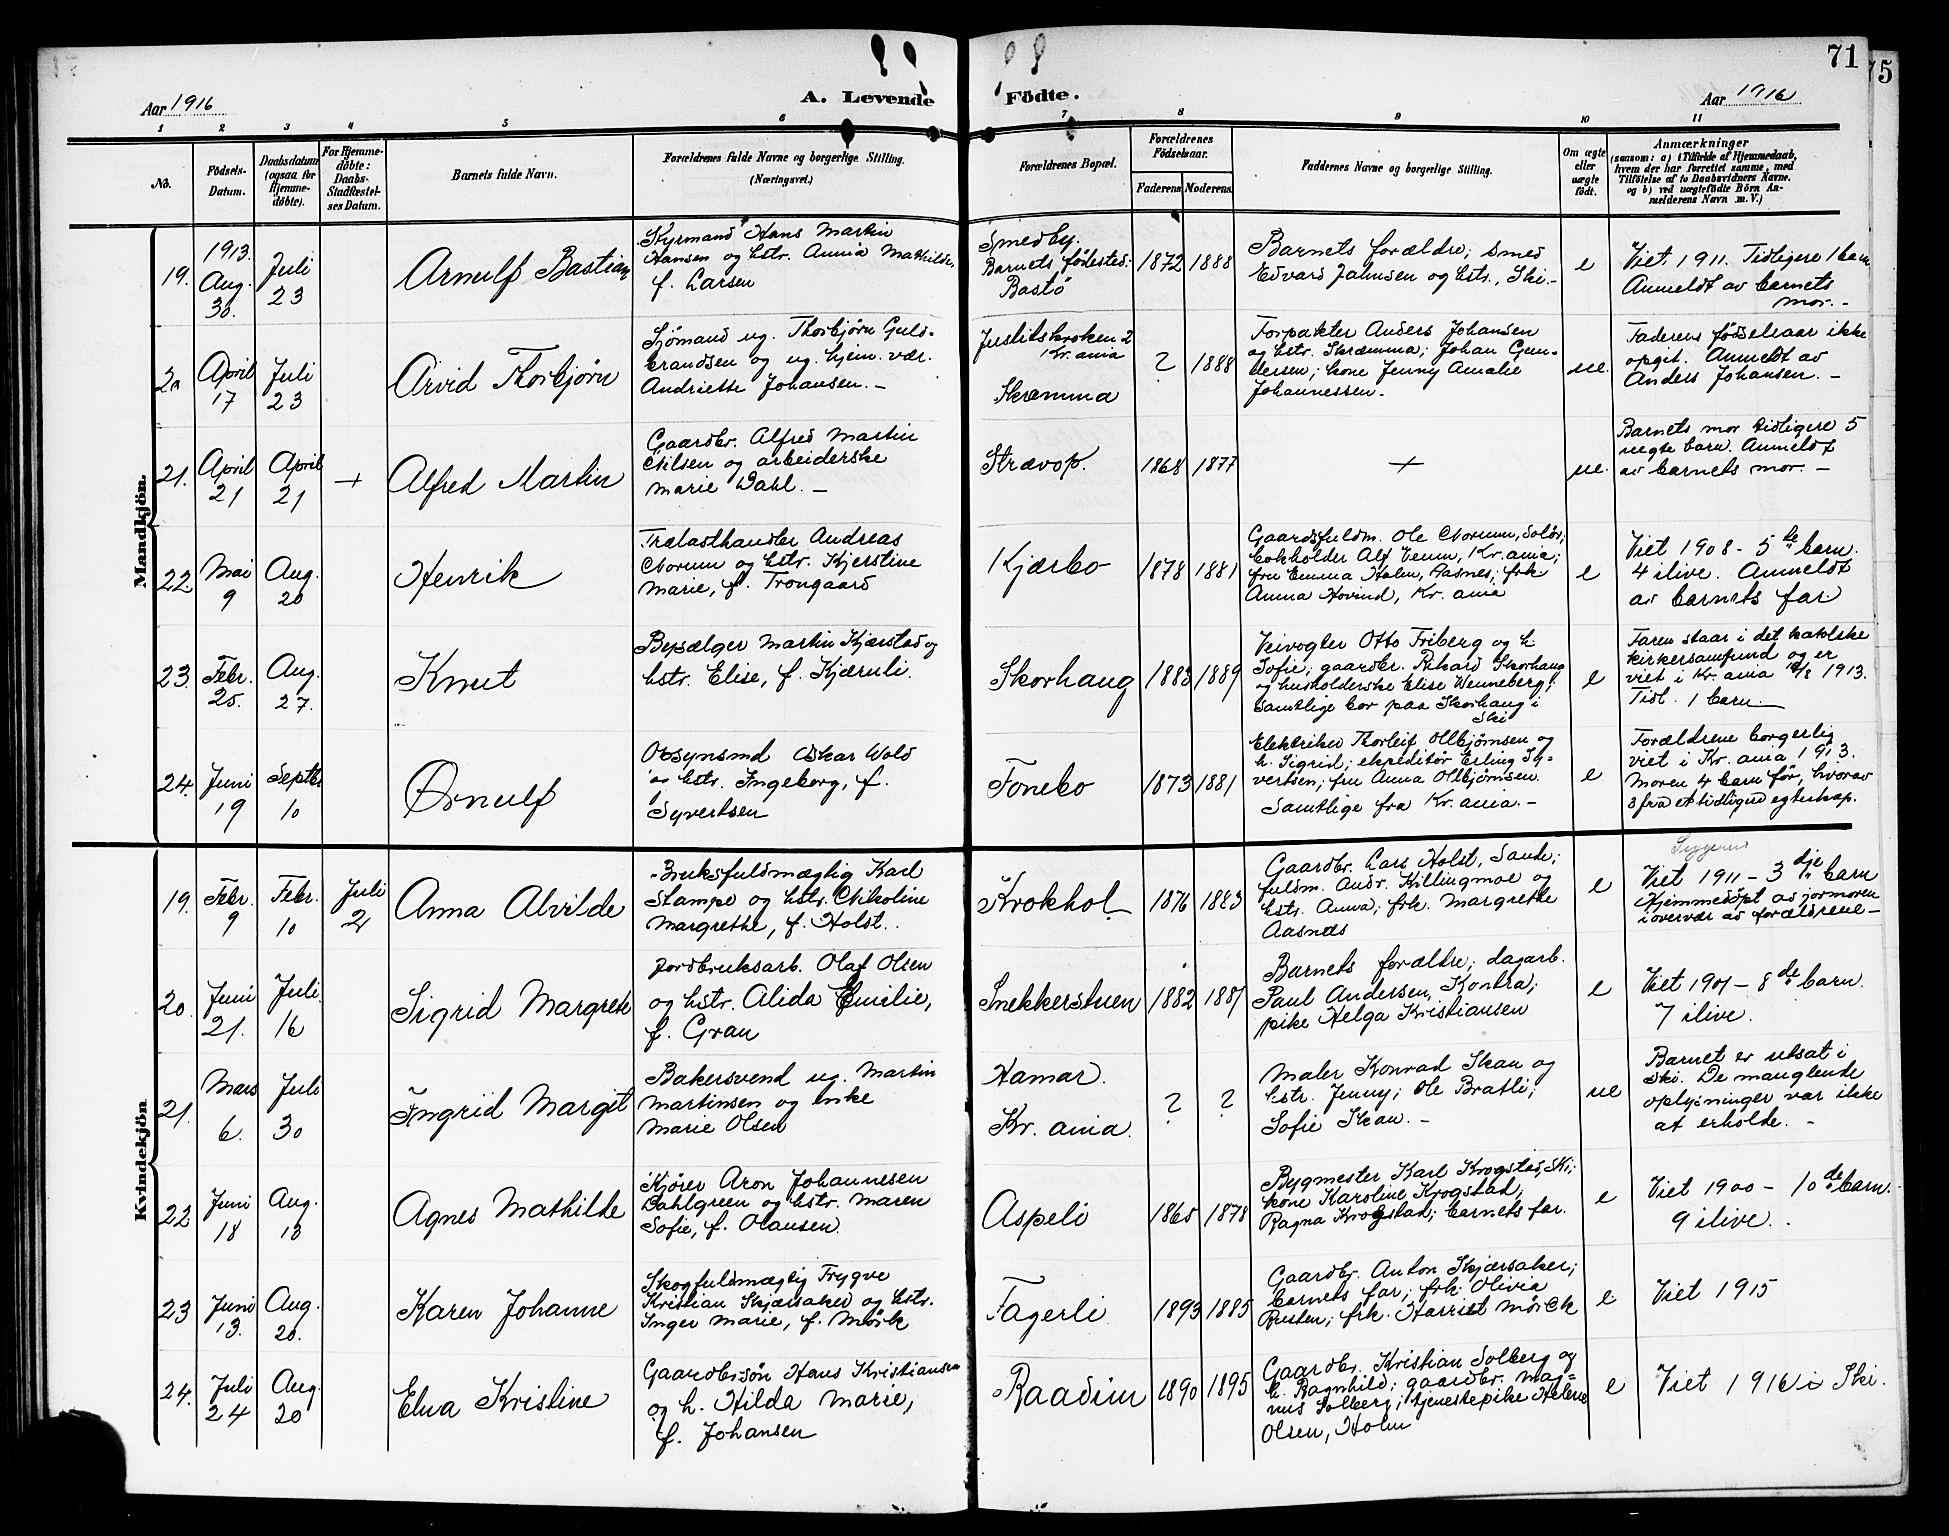 71
75
Aar 1916
A. Levende Födte.
Aar 1916
1 2 3 4 5 6 7 8 9 10 11
No.
Födsels-
Datum.
Daabsdatum
(ogsaa for
Hjemme-
döbte).
For Hjemme-
döbte:
Daabs-
Stadfæstel-
ses Datum.
Barnets fulde Navn.
Forældrenes fulde Navne og borgerlige Stilling.
(Næringsvei.)
Forældrenes Bopæl.
Forældrenes
Födselsaar.
Faderens Moderens
Faddernes Navne og borgerlige Stilling.
Om ægte
eller
uægte
födt.
Anmærkninger
(saasom: a) i Tilfælde af Hjemmedaab,
hvem der har forrettet samme, med
Tilföielse af to Daabsvidners Navne,
og b) ved uægtefödte Börn An-
melderens Navn m. V.)
Mandkjön.
19.
1913.
Aug.
30.
Juli
23
Arnulf Bastian
Styrmand Hans Martin
Hansen og hstr. Anna Mathilde,
f. Larsen
Smedby.
Barnets fødested:
Bastö
1872 1888
Barnets forældre; smed
Edvard Jahnsen og hstr., Ski.-
e
Viet. 1911. Tidligere 1 barn
Anmeldt av barnets
mor.-
20
April
17
Juli
23
Arvid Thorbjørn
Sjømand ug. Thorbjørn Guld-
brandsen og ug. hjem. vær.
Andriette Johansen.-
2
Kr.ania
Skræmma
? 1888
Forpakter Anders Johansen
og hstr. Skræmma; Johan Gun-
dersen; kone Jenny Amalie
Johannessen.
ue.
Faderens fødselsaar ikke
opgit. Anmeldt av
Anders Johansen.-
21.
April
21
April
21
+
Alfred Martin
Gaardbr. Alfred Martin
Nilsen og arbeiderske
Marie Dahl.-
Strævop.
1868 1877
+
ue.
Barnets mor tidligere 5
uegte barn. Anmeldt
av barnets mor.-
22.
Mai
9
Aug.
20
Henrik
Trælasthandler Andreas
Norum og hstr. Kjerstine
Marie, f. Trongaard
Kjærbo
1878 1881
Gaardsfuldm. Ole Norum, Solör;
bokholder Alf Venm, Kr.ania;
fru Emma Holm, Aasnes; frk
Anna Hovind, Kr.ania
e
Viet 1908 - 5 te barn.
4 ilive. Anmeldt
av barnets far.
23.
Febr.
25.
Aug.
27.
Knut
Bysælger Martin Kjærstad og
hstr. Elise, f. Kjærnli.
Skorhaug
1883 1889
Veivogter Otto Friberg og h.
Sofie; gaardbr. Rikard Skorhaug
og husholderske Elise Wenneberg;
samtlige bor paa Skorhaug i
Ski
e
Faren staar i det katolske
kirkesamfund og er
viet i Kr.ania /8 1913.
Tidl. 1 barn.
24.
Juni
19
Septbr.
10
Ørnulf
Opsynsmd Oskar Wold
og hstr. Ingeborg, f.
Syvertsen
Tonebo
1873 1881
Elektriker Thorleif Ollbjørnsen og
h. Sigrid; ekspeditør Erling Sy-
vertsen; fru Anna Ollbjørnsen.
Samtlige fra Kr.ania.-
e
Forældrene borgerlig
viet i Kr.ania 1913.
Moren 4 barn før, hvorav
3 fra et tidligere egteskap.
Kvindekjön
19.
Febr.
9
Febr.
10
Juli
2
Anna Alvilde
Bruksfuldmægtig Karl
Stampe og hstr. Nikoline
Margrethe, f. Holst.
Krokhol
1876 1883
Gaardbr. Lars Holst, Sande;
fuldm. Andr. Killingmoe og
hstr. Anna; frk. Margrethe
Aasnæs
e
Viet 1911 - 3 dje barn
Hjemmedøpt av jormoren
i overvær av forældrene-
20.
Juni
21.
Juli
16
Sigrid Margrete
Jordbruksarb. Olaf Olsen
og hstr. Alida Emilie,
f. Gran
Snekkerstuen
1882 1881
Barnets forældre; dagarb.
Paul Andersen, Kontra;
pike Helga Kristiansen
e
Viet 1901 - 8 de barn.
7 ilive.
21.
Mars
6.
Juli
30
Ingrid Margit
Bakersvend ug. Martin
Martinsen og enke
Marie Olsen
Hamar.
Kr.ania.
? ?
Maler Konrad Skau og
hstr. Jenny; Ole Bratli;
Sofie Skau.-
ue
Barnet er utsat i
Ski. De manglende
oplysninger var ikke
at erholde.-
22
Juni
18
Aug.
13
Agnes Mathilde
Kjører Aron Johannesen
Dahlgreen og hstr. Maren
Sofie, f. Olausen.
Aspeli
1865 1878
Bygmester Karl Krogstad, Ski;
kone Karoline Krogstad;
Ragna Krogstad; barnets far.
e
Viet 1900 - 10 de barn.
9 ilive.
23
Juni
13.
Aug.
20.
Karen Johanne
Skogfuldmægtig Trygve
Kristian Skjærsaker og hstr.
Inger Marie, f. Mørk
Fagerli
1893 1885
Gaardbr. Anton Skjærsaker;
barnets far; frk. Olivia
Rusten; frk. Harriet Mörck
e
Viet 1915
24.
Juli
24
Aug
20
Elna Kristine
Gaardbr.søn Hans Kristiansen
og h. Hilda Marie,
f. Johansen
Raadim
1890 1895
Gaardbr. Kristian Solberg og
h. Ragnhild; gaardbr. Mag-
nus Solberg; tjenestepike Helene
Olsen, Holm
e
Viet 1916 i Ski.